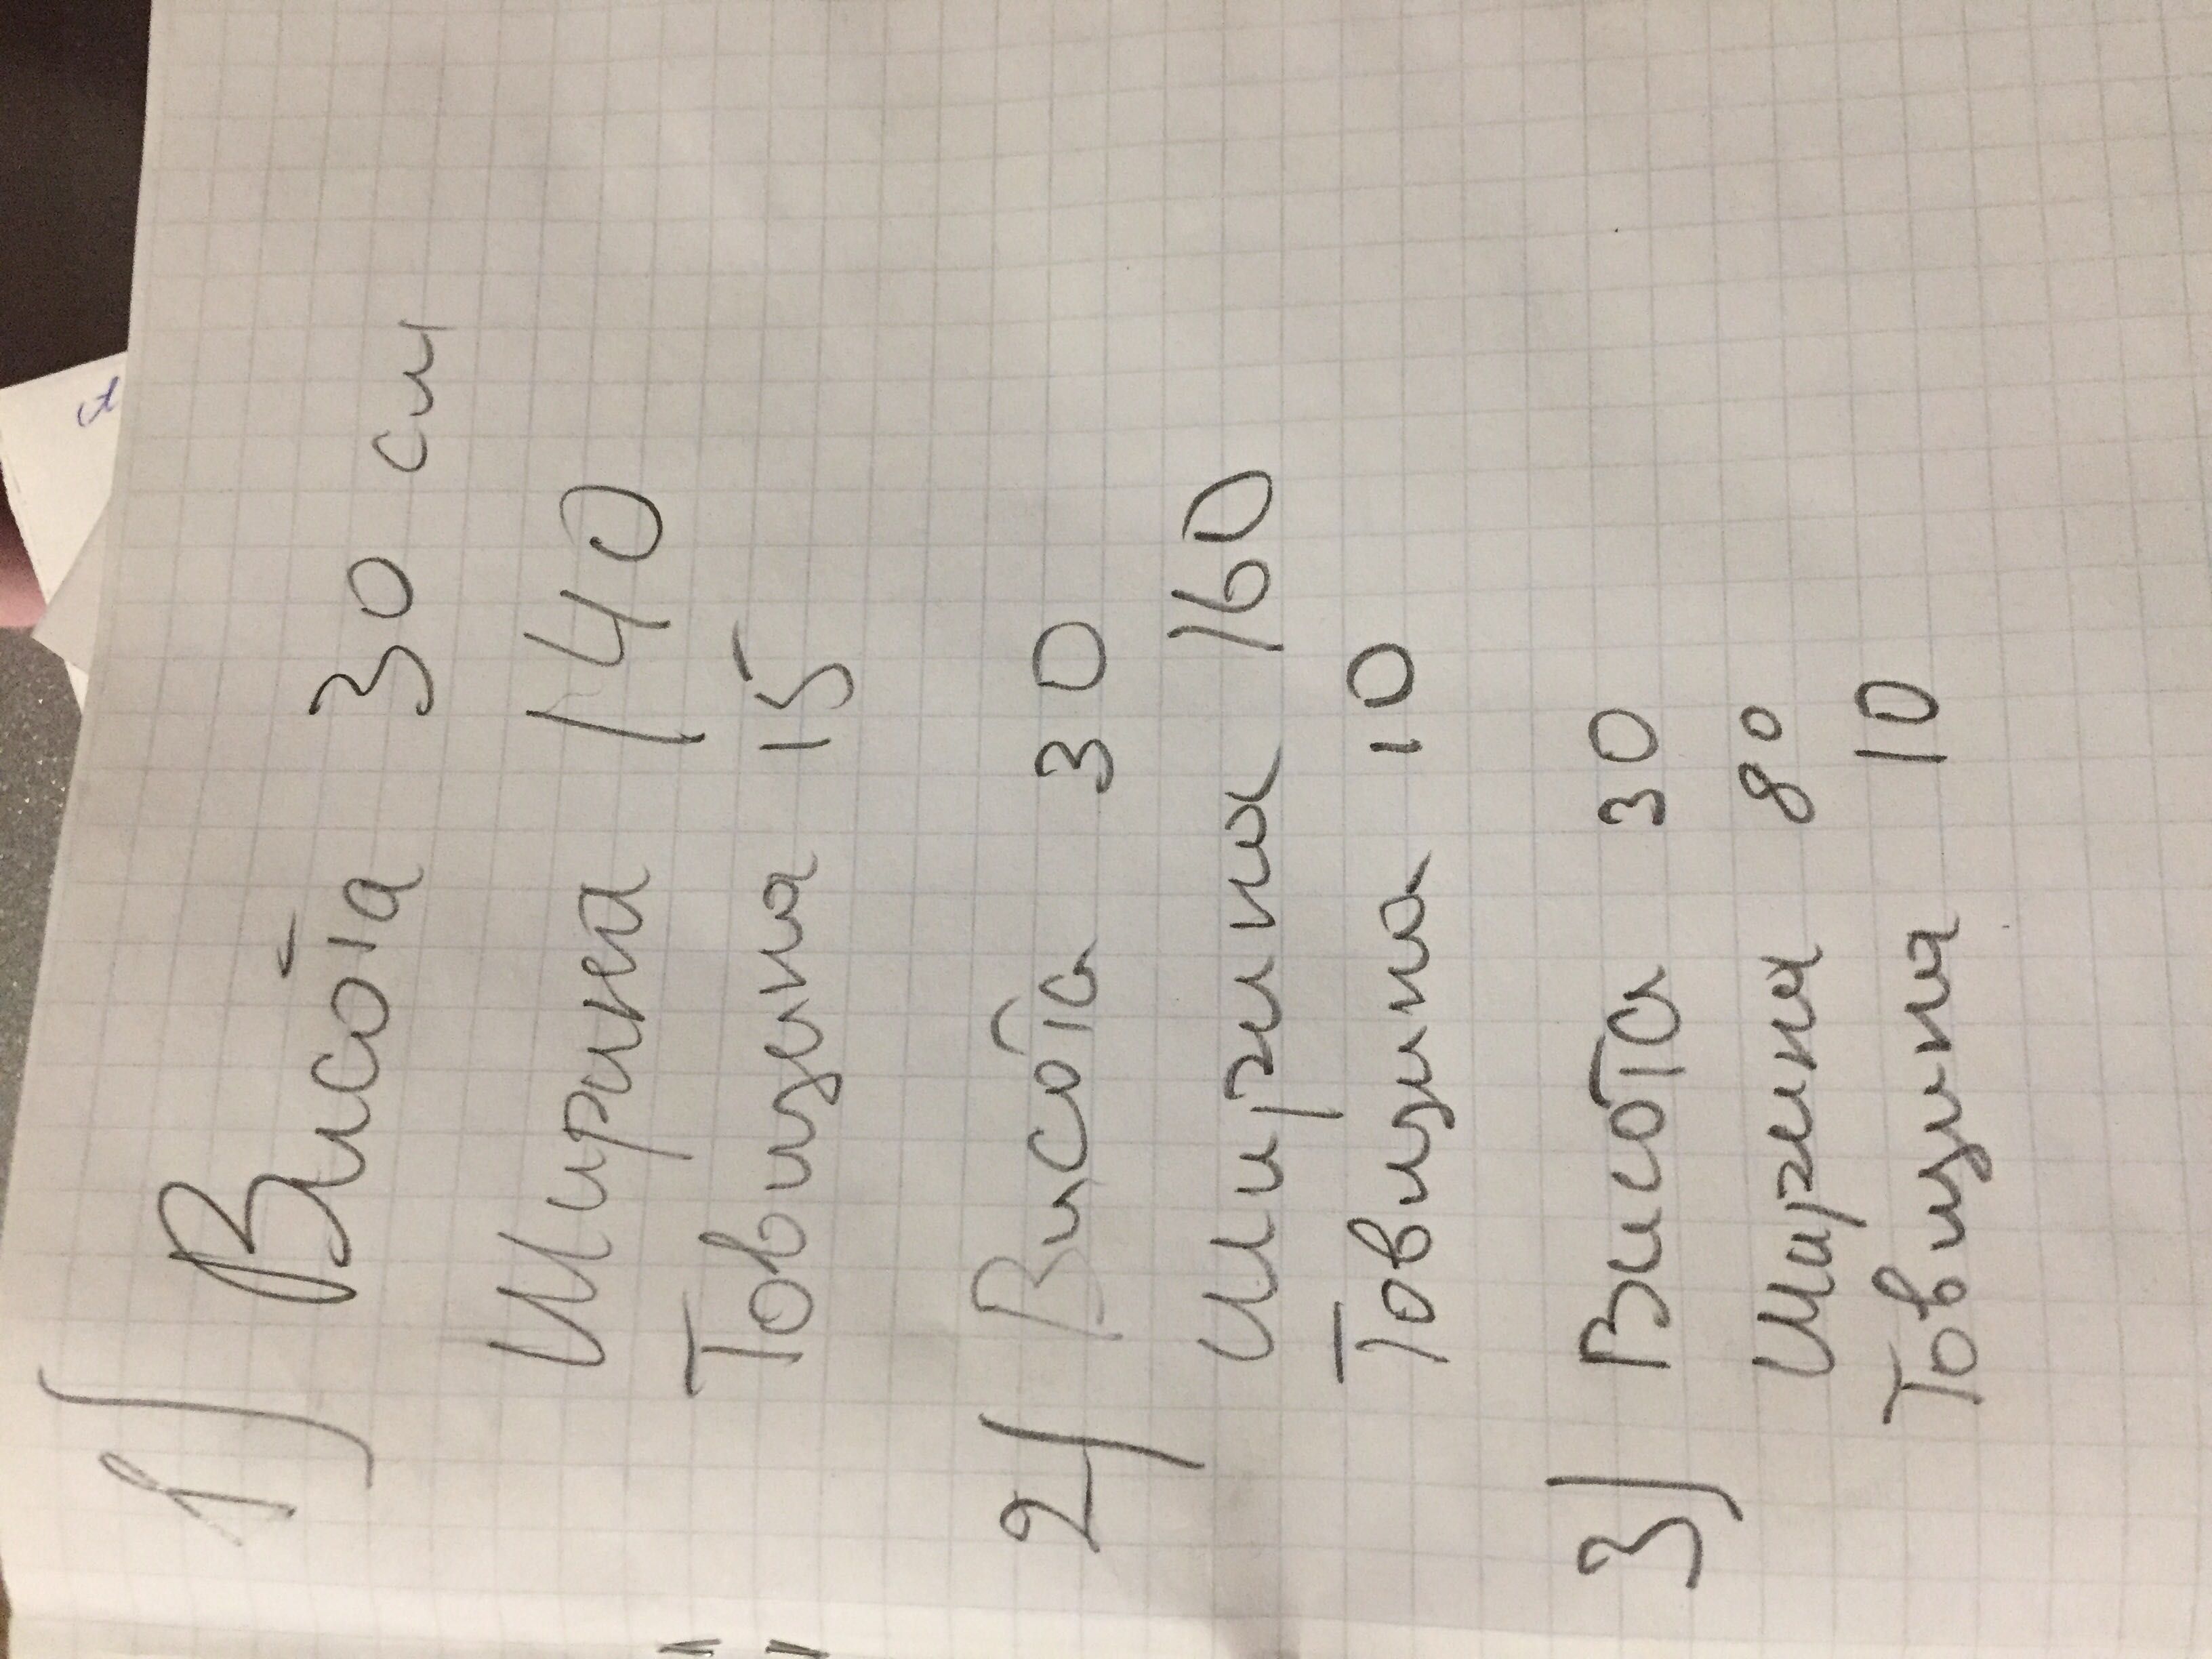 1) Висота 30 см
Ширина 140
Товщина 15
2) Висота 30
Ширина 160
Товщина 10
3) Висота 30
Ширина 80
Товщина 10